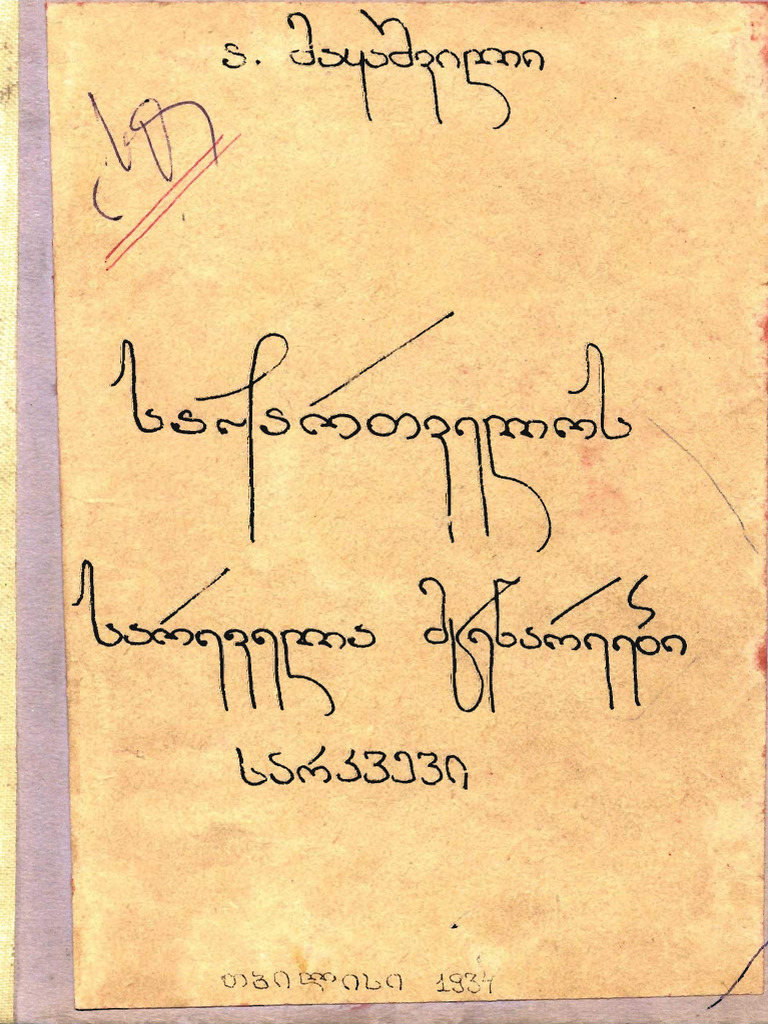 ა. მაყაშვილი
საქართველოს
სარეველა მცენარეები
სარკვევი
თბილისი 1934